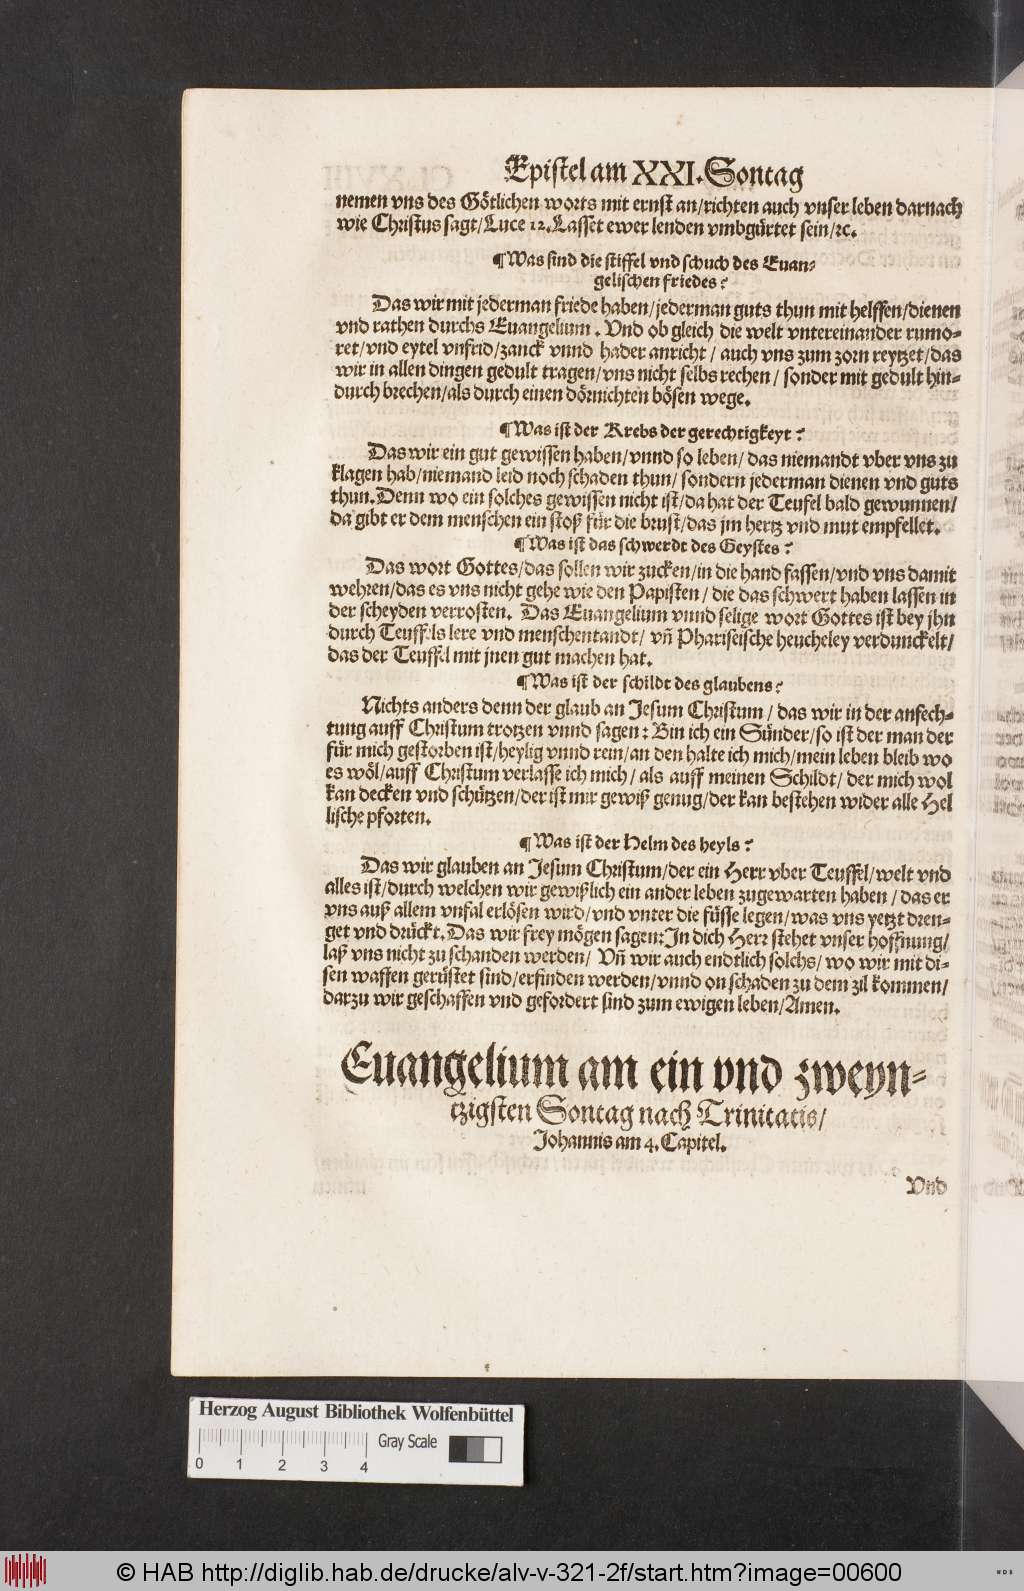 Epistel am XXI. Sontag
nemen vns des Götlichen worts mit ernst an/richten auch vnser leben darnach
wie Christus sagt/Luce 12. Lasset ewer lenden vmbgürtet sein/ꝛc.
¶ Was sind die stiffel vnd schuch des Euan-
gelischen friedes?
Das wir mit jederman friede haben/jederman guts thun mit helffen/dienen
vnd rathen durchs Euangelium. Vnd ob gleich die welt vntereinander rumo-
ret/vnd eytel vnfrid/zanck vnnd hader anricht/ auch vns zum zorn reytzet/das
wir in allen dingen gedult tragen/vns nicht selbs rechen/ sonder mit gedult hin-
durch brechen/als durch einen dörnichten bösen wege.
¶ Was ist der Krebs der gerechtigkeyt?
Das wir ein gut gewissen haben/vnnd so leben/ das niemandt vber vns zu
klagen hab/niemand leid noch schaden thun/ sondern jederman dienen vnd guts
thun. Denn wo ein solches gewissen nicht ist/da hat der Teufel bald gewunnen/
da gibt er dem menschen ein stoß für die brust/das jm hertz vnd mut empfellet.
¶ Was ist das schwerdt des Geystes?
Das wort Gottes/das sollen wir zucken/in die hand fassen/vnd vns damit
wehren/das es vns nicht gehe wie den Papisten/ die das schwert haben lassen in
der scheyden verrosten. Das Euangelium vnnd selige wort Gottes ist bey jhn
durch Teuffels lere vnd menschentandt/ vñ Phariseische heucheley verdunckelt/
das der Teuffel mit jnen gut machen hat.
¶ Was ist der schildt des glaubens?
Nichts anders denn der glaub an Jesum Christum/ das wir in der anfech-
tung auff Christum trotzen vnnd sagen: Bin ich ein Sünder/so ist der man der
für mich gestorben ist/heylig vnnd rein/an den halte ich mich/mein leben bleib wo
es wöl/auff Christum verlasse ich mich/ als auff meinen Schildt/ der mich wol
kan decken vnd schützen/der ist mir gewiß genug/der kan bestehen wider alle Hel
lische pforten.
¶ Was ist der Helm des heyls?
Das wir glauben an Jesum Christum/der ein Herr vber Teuffel/welt vnd
alles ist/durch welchen wir gewißlich ein ander leben zugewarten haben/ das er
vns auß allem vnfal erlösen wird/vnd vnter die füsse legen/was vns yetzt dren-
get vnd drückt. Das wir frey mögen sagen: In dich Herr stehet vnser hoffnung/
laß vns nicht zu schanden werden/ Vñ wir auch endtlich solchs/ wo wir mit di-
sen waffen gerüstet sind/erfinden werden/vnnd on schaden zu dem zil kommen/
darzu wir geschaffen vnd gefordert sind zum ewigen leben/Amen.
Euangelium am ein vnd zweyn-
tzigsten Sontag nach Trinitatis/
Johannis am 4. Capitel.
Vnd
Herzog August Bibliothek Wolfenbüttel
Gray Scale
0 1 2 3 4
© HAB http://diglib.hab.de/drucke/alv-v-321-2f/start.htm?image=00600